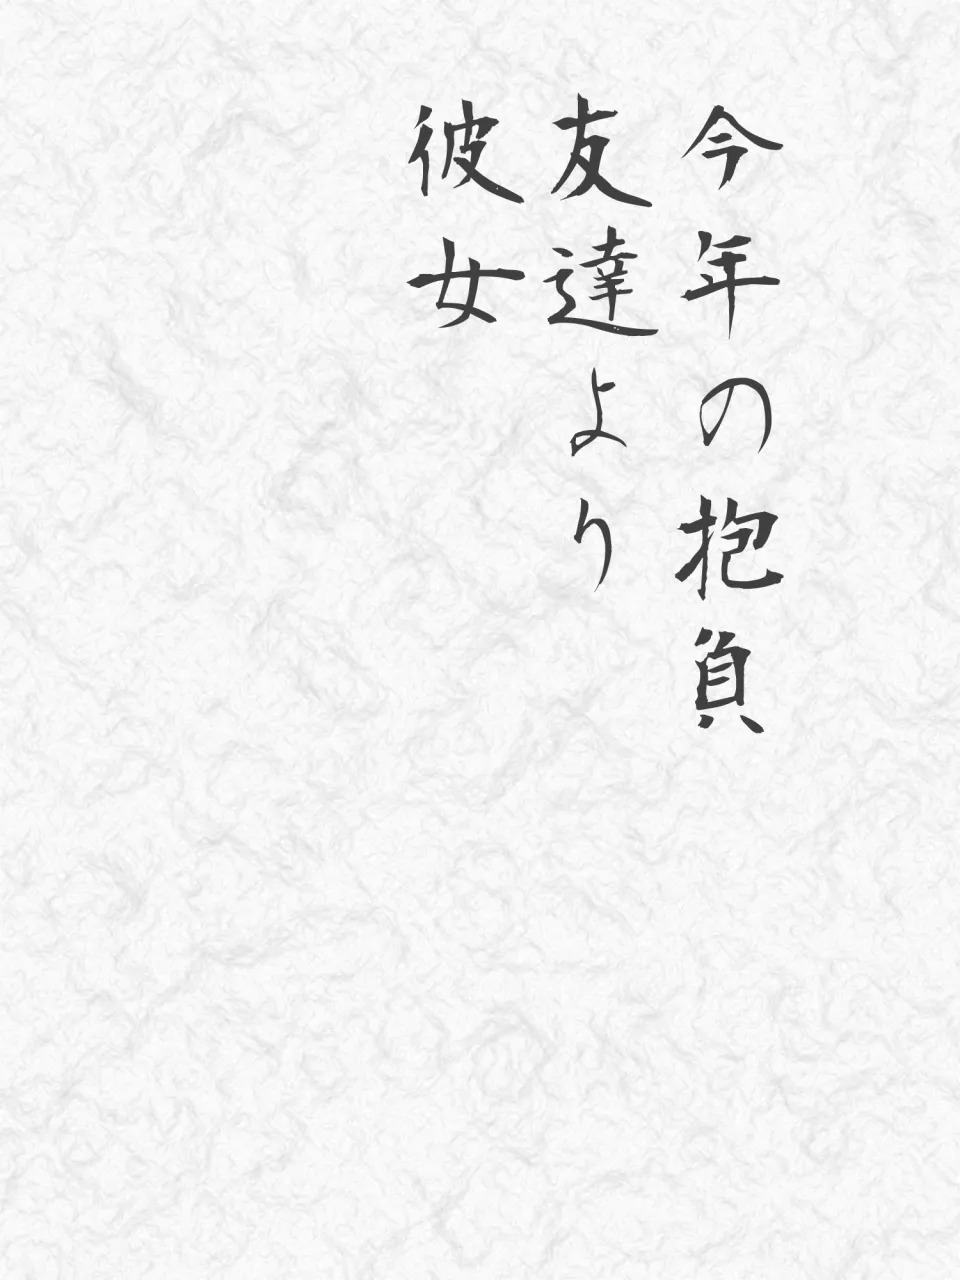 今年の抱負
友達より
彼女